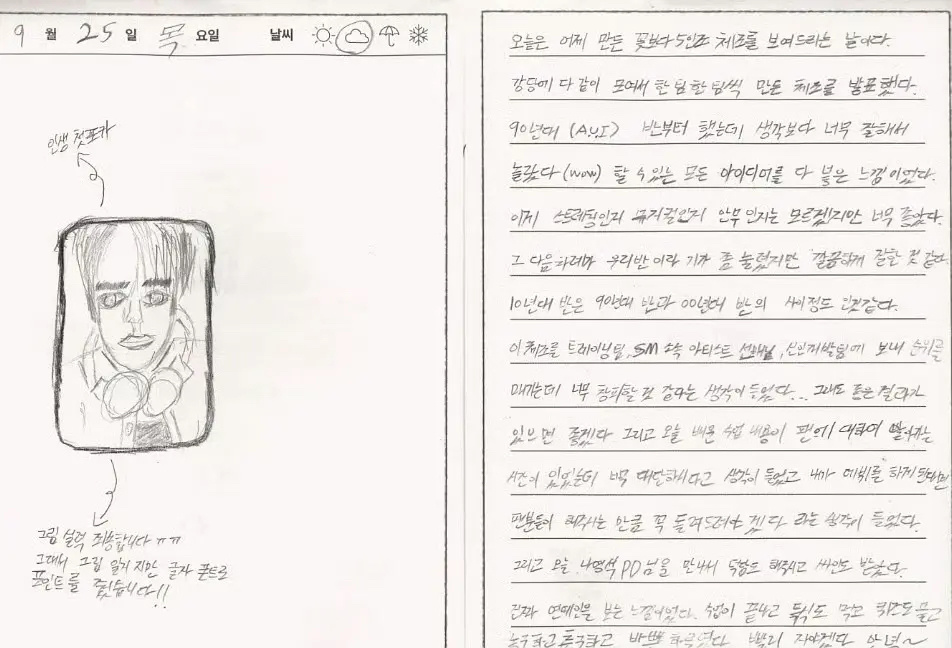 9월 25일 목요일 날씨
인생 첫 포카
그림 실력 죄송합니다 ㅠㅠ
그대신 그림 일기지만 글자 폰트로
포인트를 줬습니다!!
오늘은 어제 만든 꽃보다 5인조 체조를 보여드리는 날이다.
강당에 다 같이 모여서 한 팀 한 팀씩 만든 체조를 발표했다.
90년대 (A.U.I) 반부터 했는데 생각보다 너무 잘해서
놀랐다 (wow) 할 수 있는 모든 아이디어를 다 넣은 느낌이었다.
이게 스트레칭인지 뮤지컬인지 안무인지는 모르겠지만 너무 좋았다.
그 다음 하려마 우리반이라 기가 좀 눌렸지만 깔끔하게 잘한 것 같다.
10년대 반은 90년대 반과 00년대 반의 사이정도 인것같다.
이 체조를 트레이닝팀, SM 소속 아티스트 선배님, 신인개발팀에 보내 순위를
매기는데 너무 창피할 것 같다는 생각이 들었다... 그래도 좋은 결과가
있으면 좋겠다 그리고 오늘 배운 수업 내용이 팬에 대하여 말하는
시간이 있었는데 대단하시다고 생각이 들었고 내가 데뷔를 하게 된다면
팬분들이 해주시는 만큼 꼭 돌려드려야 겠다 라는 생각이 들었다.
그리고 오늘 나영석 PD님을 만나서 해주시고 싸인도 받았다.
진짜 연예인을 보는 느낌이었다. 수업이 끝나고 먹고 퀴즈도 풀고
농구하고 축구하고 바쁜 하루였다 빨리 자야겠다 안녕~